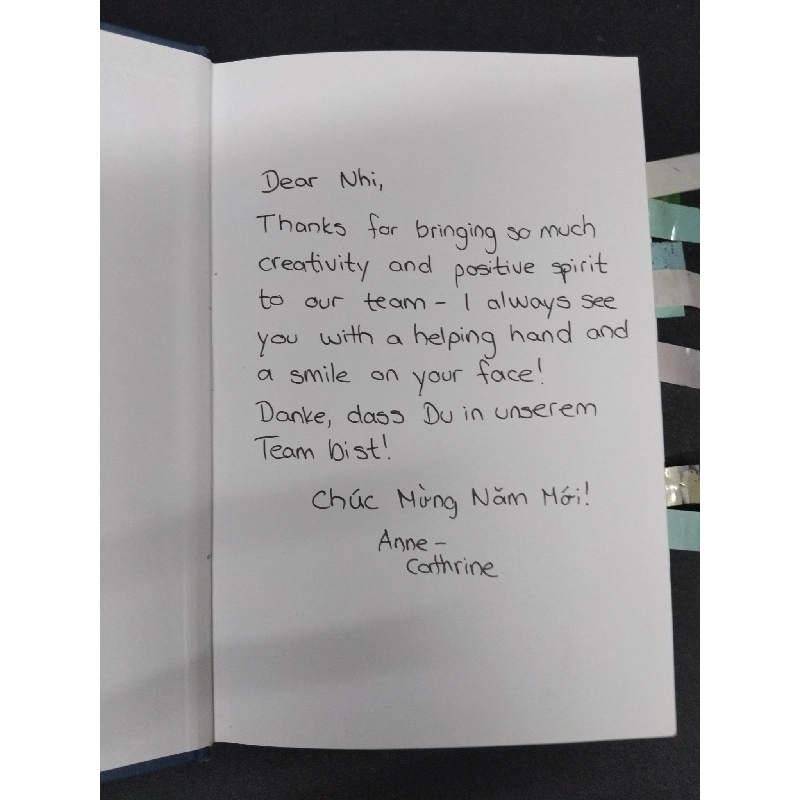 Dear Nhi,
Thanks for bringing so much
creativity and positive spirit
to our team - I always see
you with a helping hand and
a smile on your face!
Danke, dass Du in unserem
Team bist!
Chúc Mừng Năm Mới!
Anne -
Cathrine